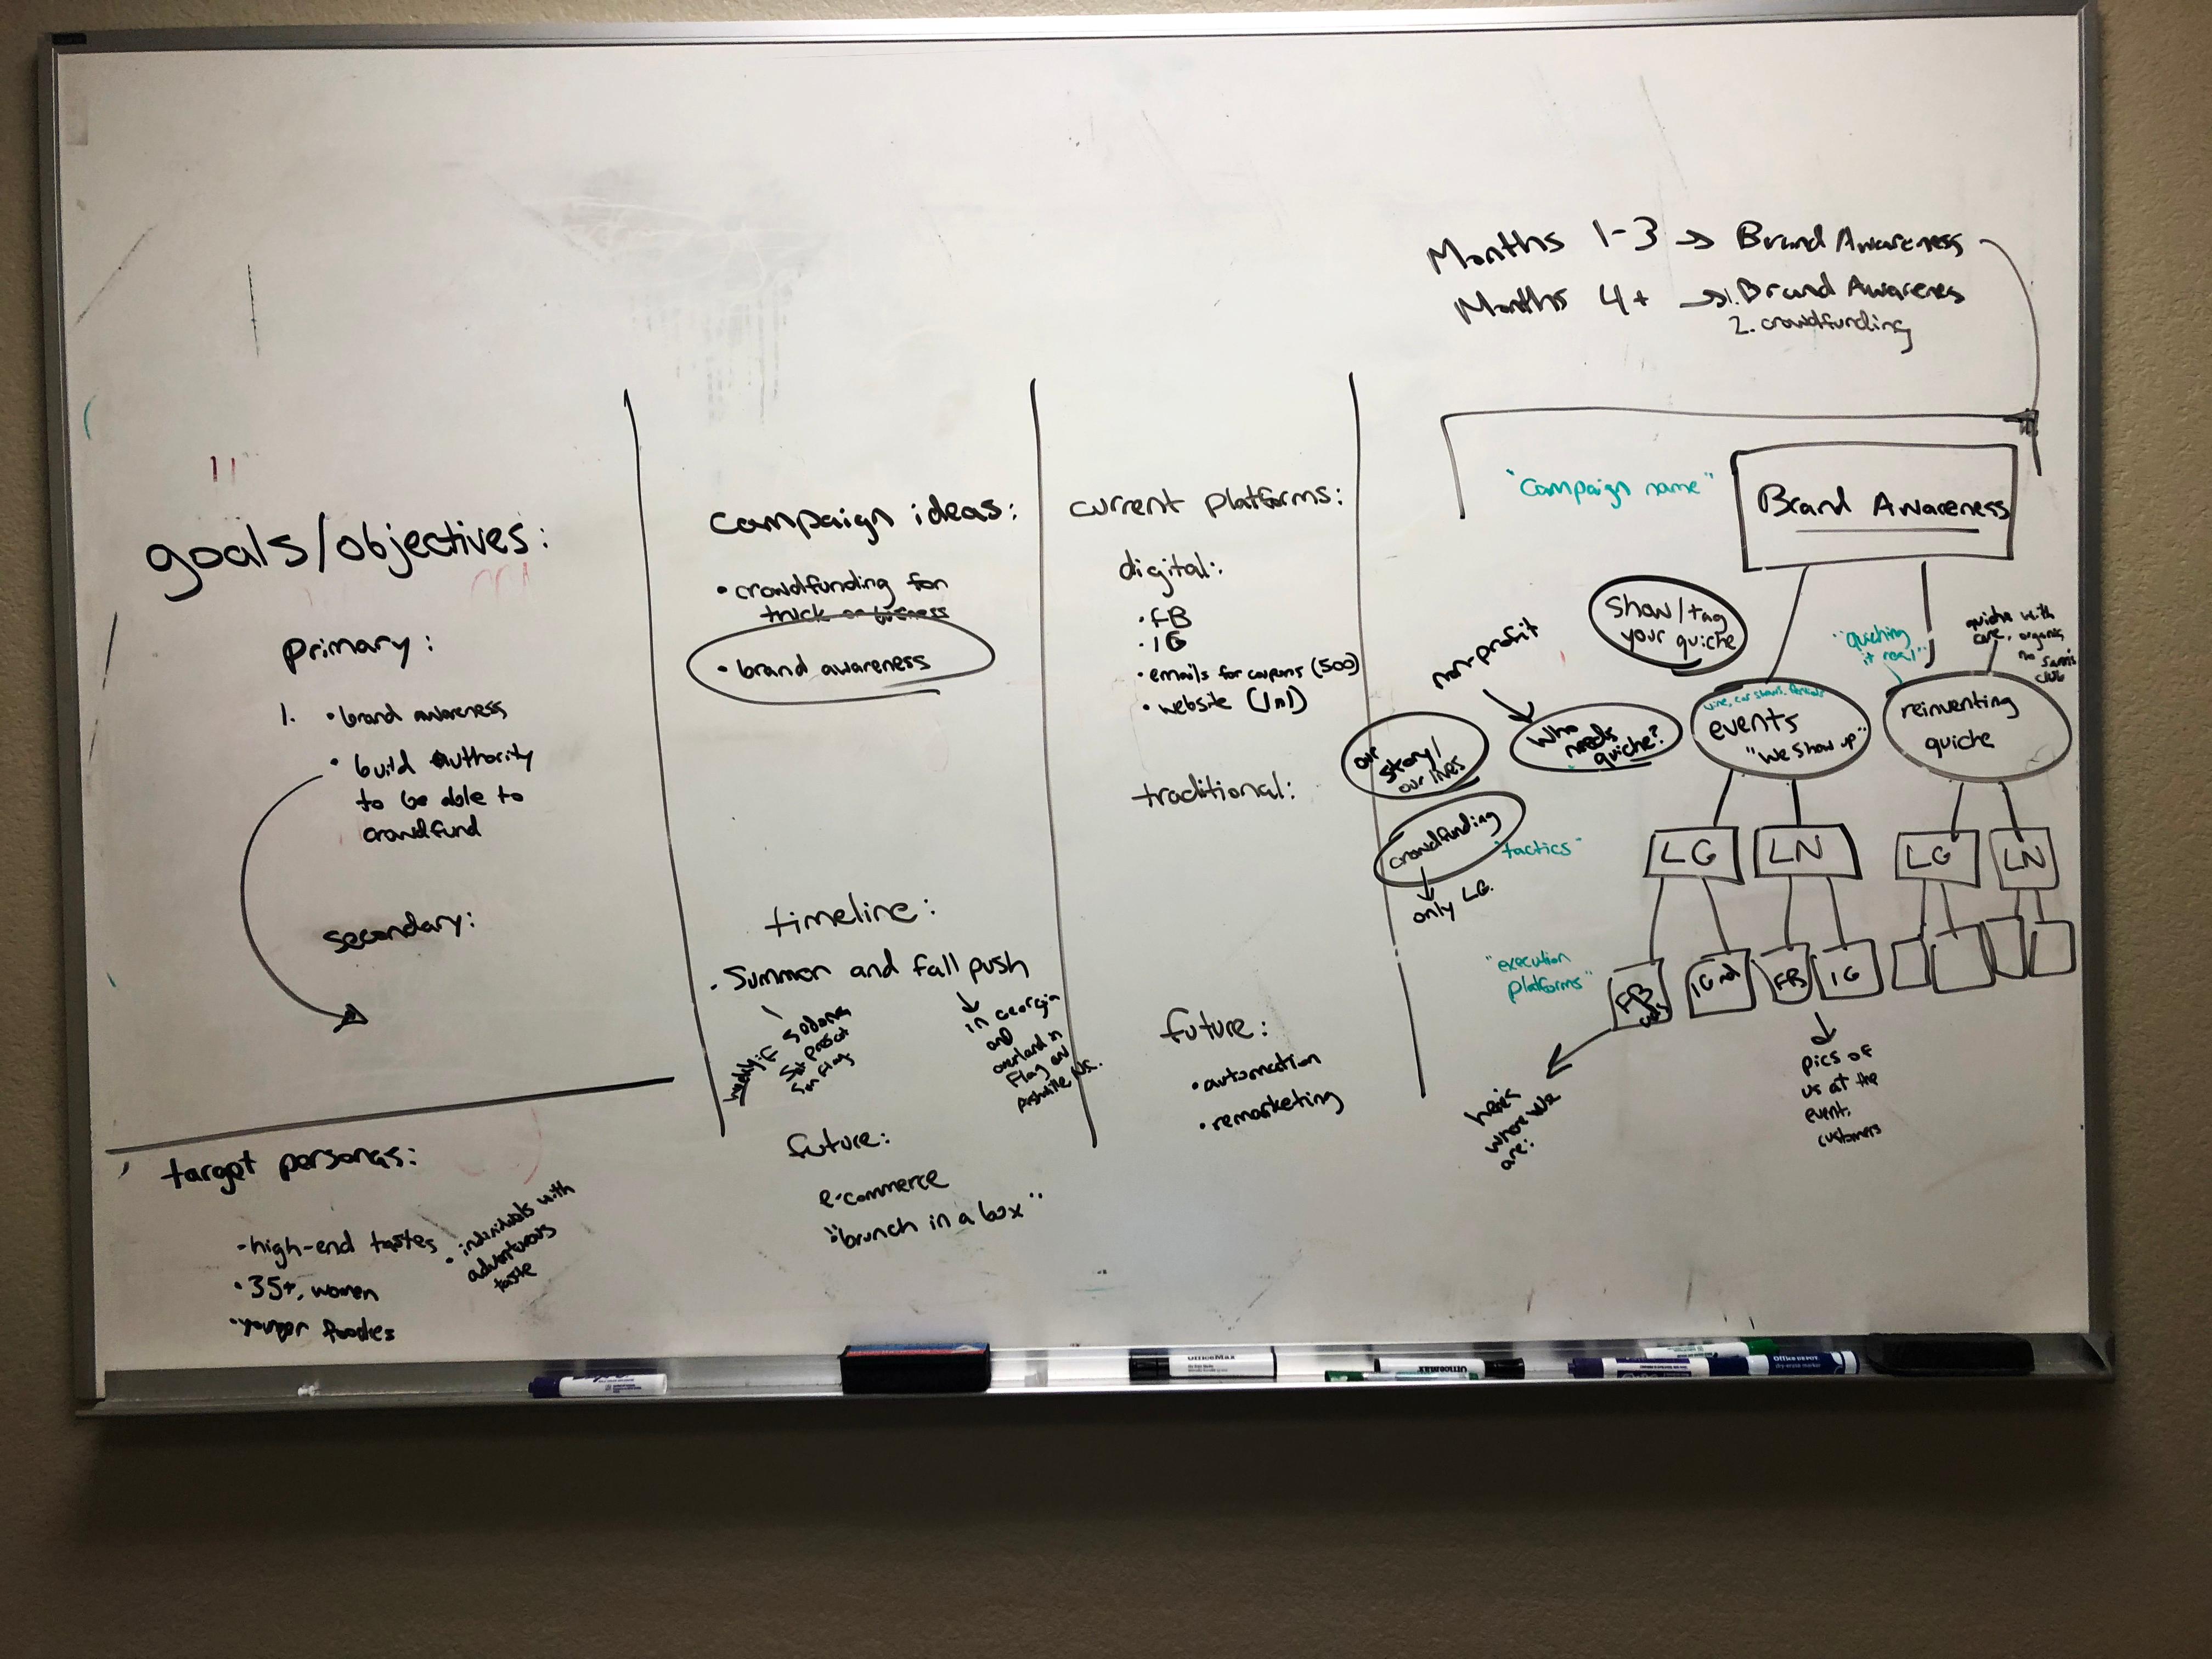 Months 1-3 → Brand Awareness
Months 4+ → 1. Brand Awarenes
2. crowdfunding
goals/objectives:
primary:
1. • brand awareness
• build authority
to be able to
crowdfund
secondary:
target personas:
- high-end tastes
• 35+, women
• younger foodies
• individuals with
adventurous
taste
campaign ideas:
• crowdfunding for
truck or
• brand awareness
timeline:
• Summer and fall push
weekly: F Sedona
Sat prescott
Sun Flag
in Georgia
and
overland in
Flag and
future:
e-commerce
"brunch in a box"
current platforms:
digital:
• FB
• IG
• emails for coupons (500)
• website (1n1)
traditional:
future:
• automation
• remarketing
"Campaign name"
Brand Awareness
show/tag
your quiche
"quiching
it real"
quiche with
care, organic,
no sam's
club
non-profit
who
needs
quiche?
our
story/
our lives
wine, car shows, festivals
events
"we show up"
reinventing
quiche
crowdfunding
only LG.
"tactics"
LG
LN
LG
LN
"execution
platforms"
FB
ads
IG
FB
IG
here's
where we
are:
pics of
us at the
event,
customers
OfficeMax
OfficeMax
Office DEPOT
dry-erase marker